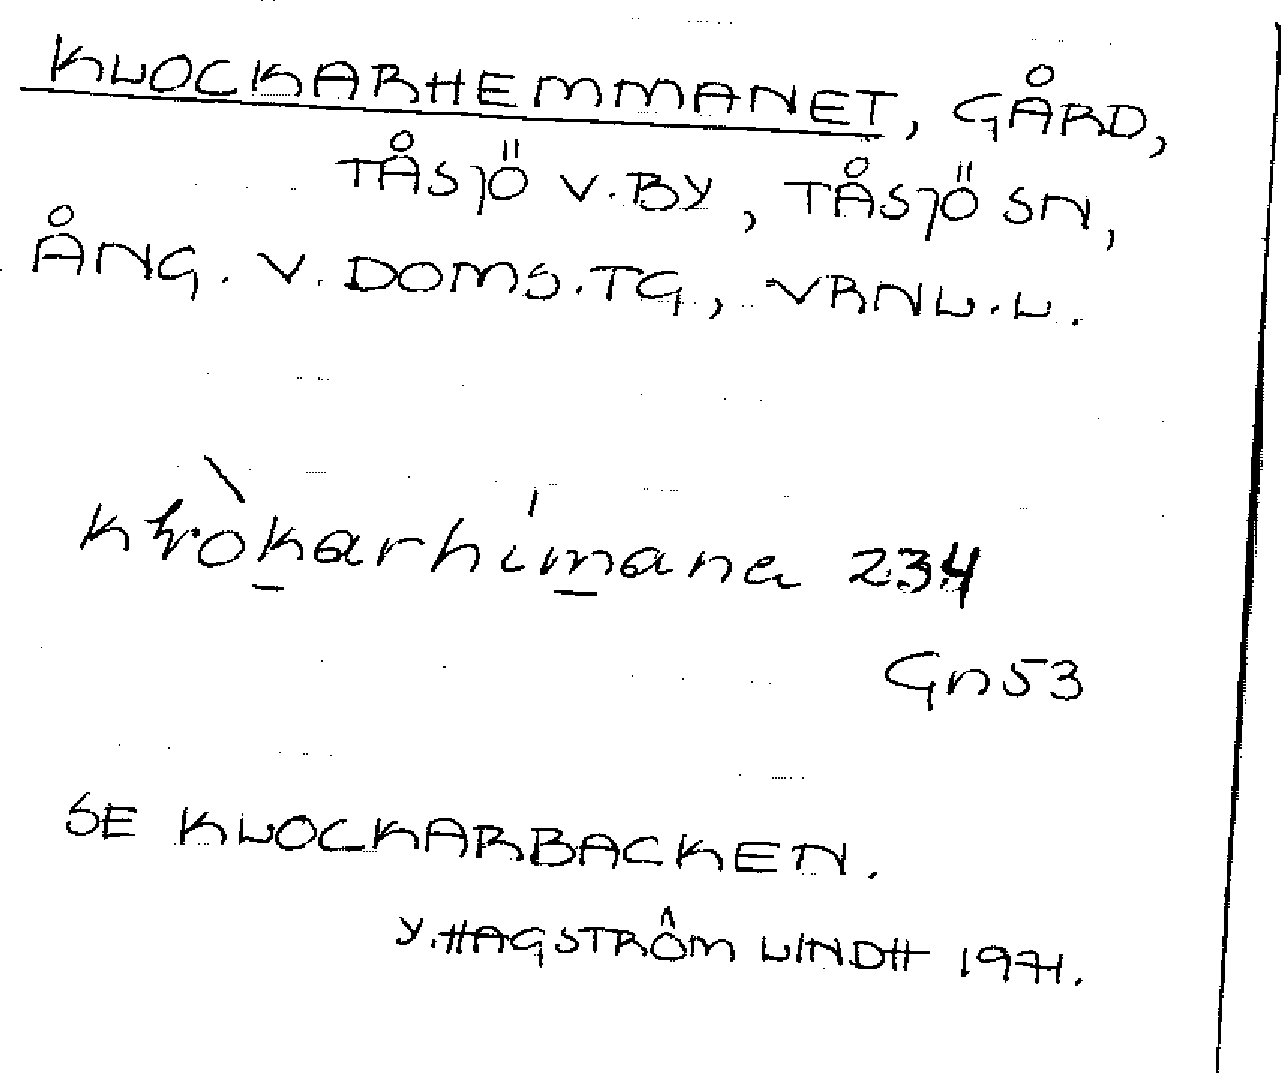 KLOCKARHEMMANET, GÅRD,
TÅSJÖ V. BY, TÅSJÖ SN,
ÅNG. V. DOMS. TG., VRNL. L.
234
Gn 53
SE KLOCKARBACKEN.
Y. HAGSTRÖM LINDH 1971.